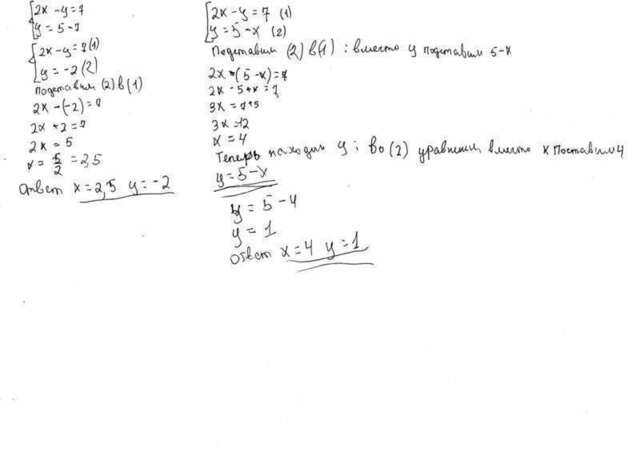 2x - y = 7
y = 5 - 7
2x - y = 7 (1)
y = -2 (2)
Подставим (2) в (1)
2x - (-2) = 7
2x + 2 = 7
2x = 5
x = 5/2 = 2,5
Ответ x = 2,5 y = -2
2x - y = 7 (1)
y = 5 - x (2)
Подставим (2) в (1) : вместо y подставим 5-x
2x - (5 - x) = 7
2x - 5 + x = 7
3x = 7+5
3x = 12
x = 4
Теперь находим y; во (2) уравнении вместо x поставим 4
y = 5 - x
y = 5 - 4
y = 1
Ответ x = 4 y = 1